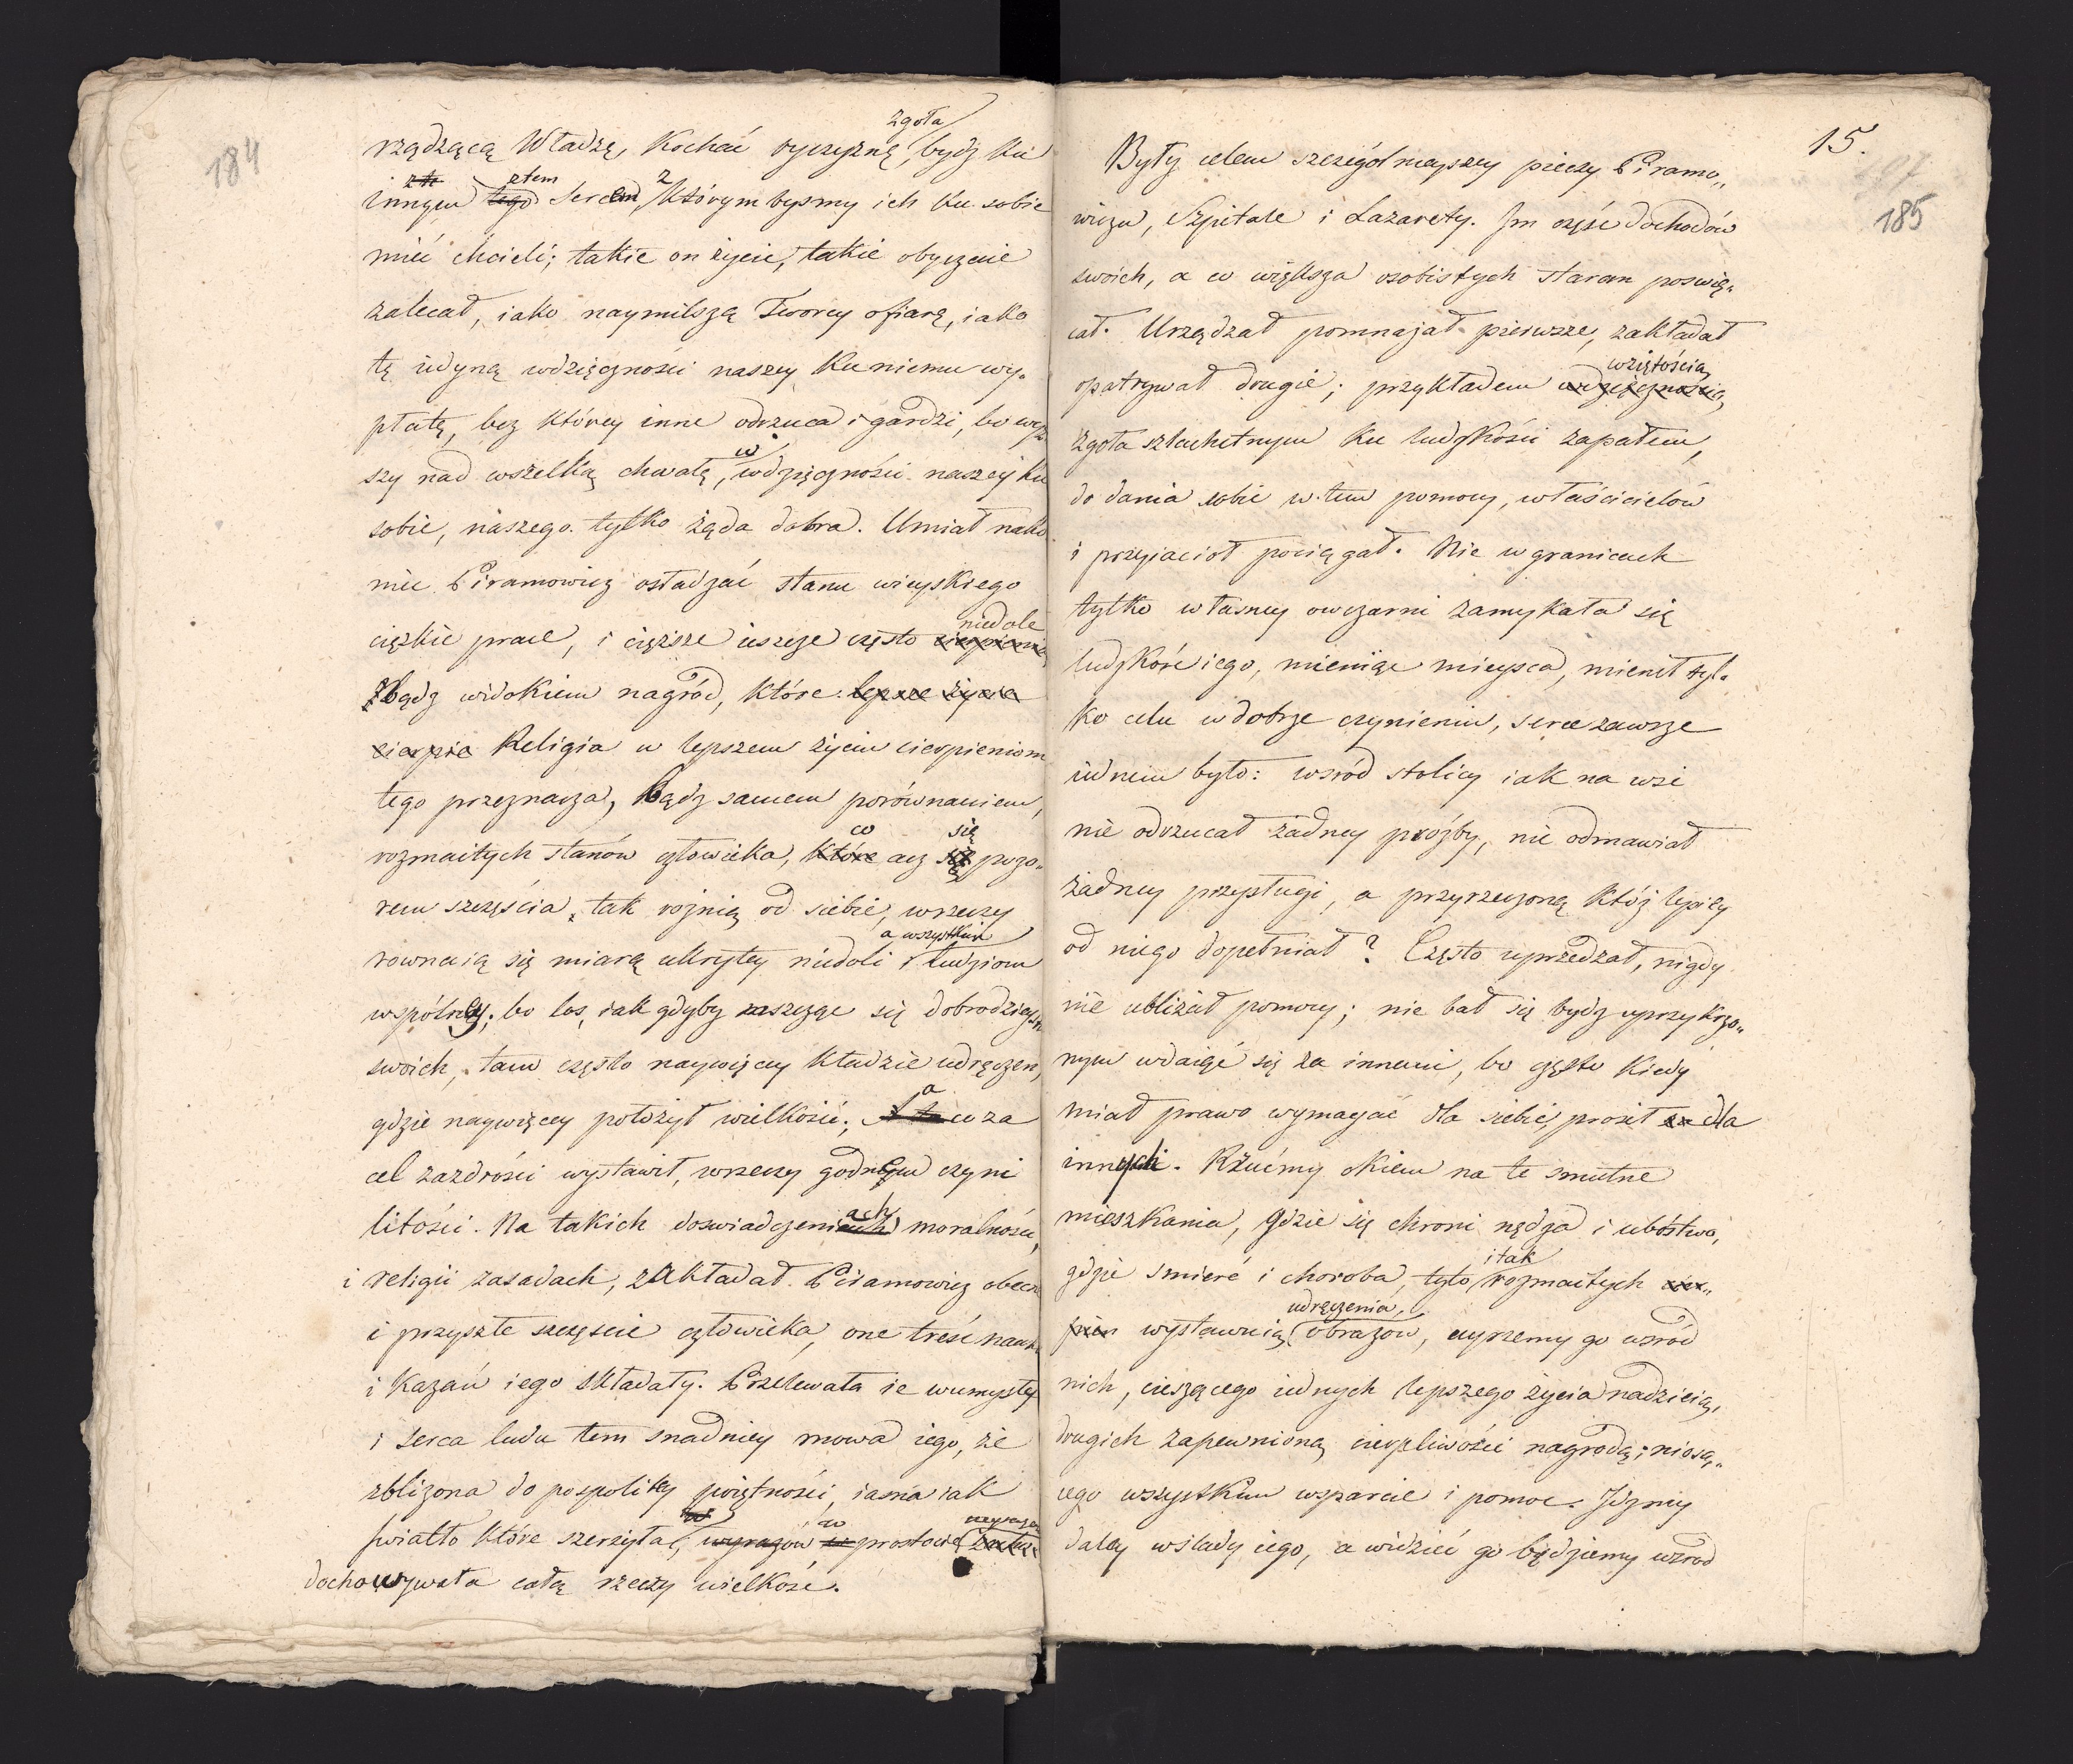 184
zgoła
rządzącą Władzę, Kochać oyczyznę, bydź ku
zte ztem z
innym tego Sercem, którym bysmy ich ku sobie
mieć chcieli; takie on życie, takie obyczaie
zalecał, iako naymilszą Tworcy ofiarę, iako
tę iedyną wdzięczności naszey ku niemu wy„
płatę, bez którey inne odrzuca i gardzi, bo wyż
szy nad wszelką chwałę, w wdzięczności naszey ku
sobie, naszego tylko żąda dobra. Umiał nako
niec Piramowicz osładzać stanu wieyskiego
niedole
ciężkie prace, i cięższe ieszcze często cierpienia
bądz widokiem nagród, które lepsze życie
cierpie Religia w lepszem życiu cierpieniom
tego przeznacza, bądz samem porównaniem,
co się
rozmaitych stanów człowieka, które acz się pozo„
rem szczęścia, tak rożnią od siebie, w rzeczy
a wszystkim
rownaią się miarą ukrytey niedoli ludziom
wspólney; bo los, iak gdyby mszcząc się dobrodzieystw
swoich, tam często naywięcey kładzie udręczen,
a
gdzie naywięcey położył wielkości; co za
cel zazdrości wystawił, w rzeczy godnym czyni
ach
litości. Na takich doswiadczeniach moralności,
i religii zasadach, zakładał Piramowicz obecne
i przyszłe szczęscie człowieka, one treść nauk
i Kazań iego składały. Przelewała ie w umysły
i serca ludu tem snadniey mowa iego, że
zbliżona do pospolitey poiętności, iasna iak
w w wyrazow
swiatło które szerzyła, wyrazów w prostocie
dochowywała całą rzeczy wielkość.
15.
187
185
Były celem szczególnieyszey pieczy Piramo„
wicza, Szpitale i Lazarety. Im część dochodów
swoich, a co większa osobistych staran poswię„
cał. Urządzał pomnażał pierwsze, zakładał
wziętością
opatrywał drugie; przykładem wdzięcznością,
zgoła szlachetnym ku ludzkości zapałem,
do dania sobie w tem pomocy, właścicielów
i przyiaciół pociągał. Nie w granicach
tylko własney owczarni zamykała się
ludzkość iego, mieniąc mieysca, mienił tyl„
ko cele w dobrze czynieniu, serce zawsze
iednem było: wsród stolicy iak na wsi
nie odrzucał żadney prozby, nie odmawiał
żadney przysługi, a przyrzeczoną któż lepiey
od niego dopełniał? Często uprzedzał, nigdy
nie ubliżał pomocy; nie bał się bydz uprzykrzo„
nym wdaiąć się za innemi, bo często kiedy
miał prawo wymagać dla siebie, prosił za dla
innych. Rzućmy okiem na te smutne
mieszkania, gdzie się chroni nędza i ubóstwo,
i tak
gdzie smierć i choroba, tylo rozmaitych cier„
udręczenia,
pien wystawuią obrazów, uyrzemy go wsród
nich, cieszącego iednych lepszego życia nadzieią,
drugich zapewnioną cierpliwości nagrodą; niosą„
cego wszystkim wsparcie i pomoc. Idzmy
daley w slady iego, a widzieć go będziemy wsrod